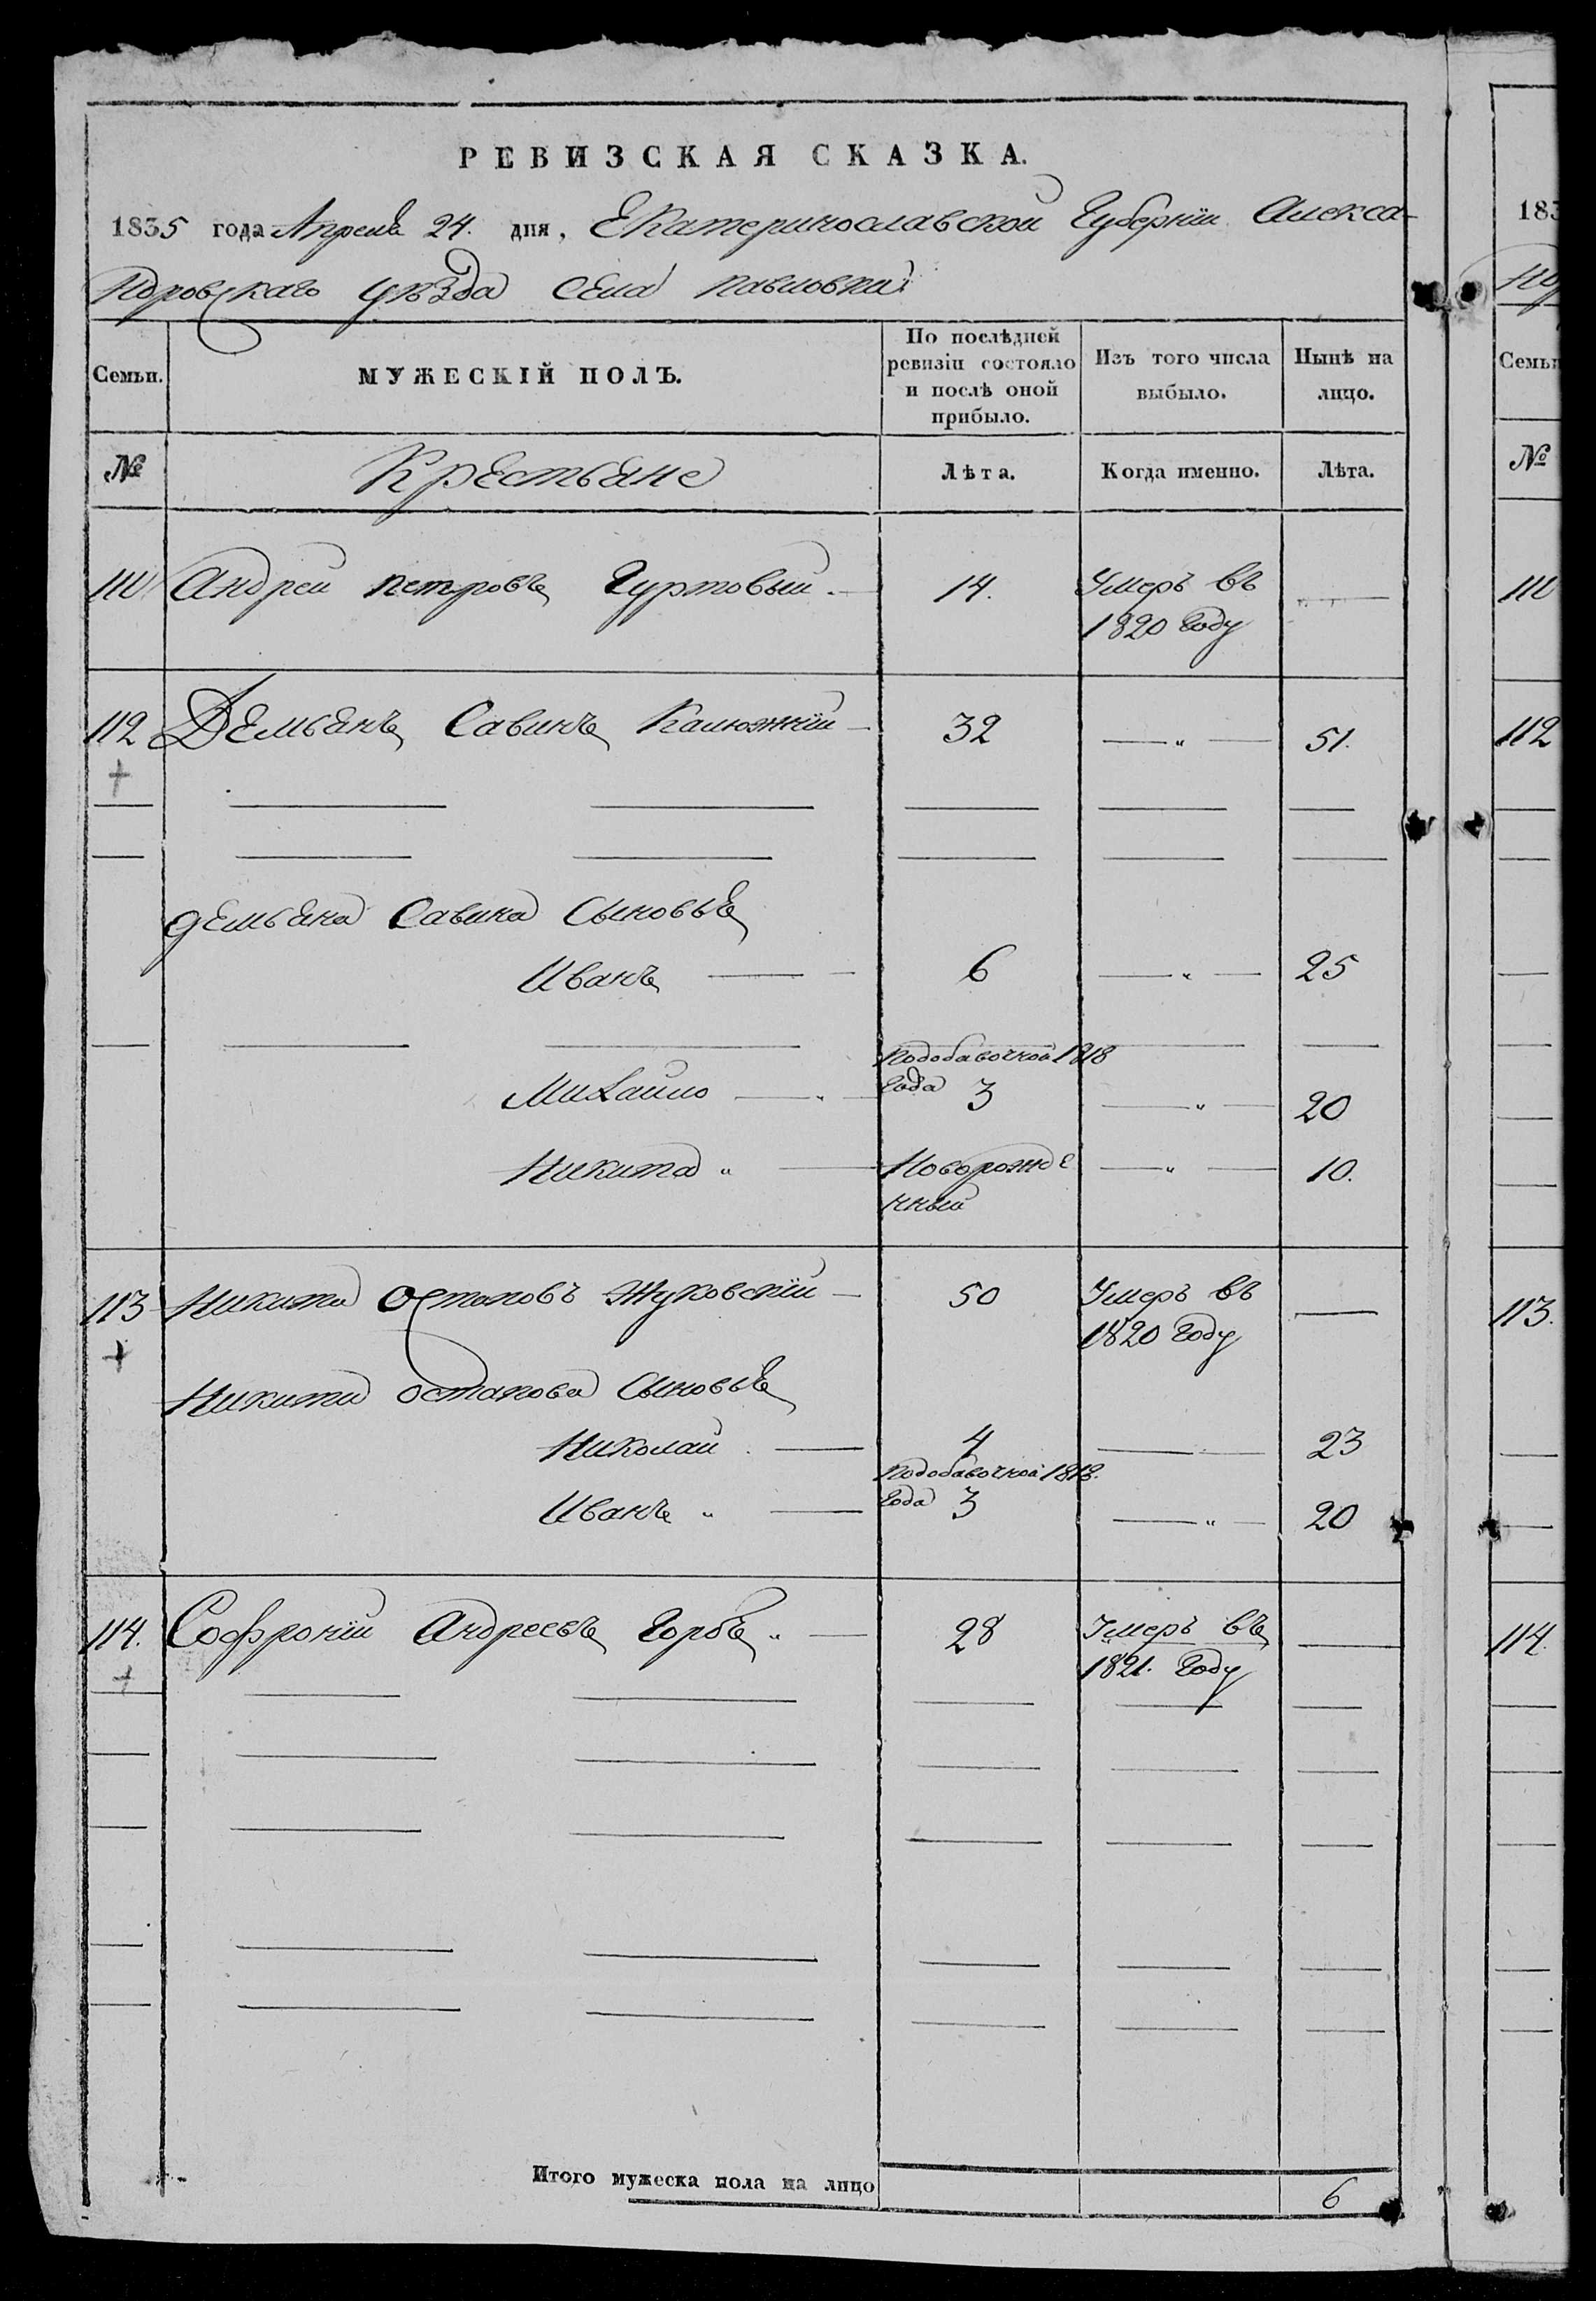 РЕВИЗСКАЯ СКАЗКА.
1835 года Апреля 24. дня, Екатеринославской Губернiи Алекса-
ндровскаго уѣзда села Павловки
Семьи. МУЖЕСКІЙ ПОЛЪ. По послѣдней ревизіи состояло и послѣ оной прибыло. Изъ того числа выбыло. Нынѣ на лицо.
№ Крестьяне Лѣта. Когда именно. Лѣта.
111 Андрей Петровъ Гуртовый 14. Умеръ въ
1820 Году
112 Демьянъ Савинъ Калюжнiй 32 51.
Демьяна Савина Сыновья
Иванъ 6 25
Подобавочной 1818
Года
Михайло 3 20
Никита Новорожде 10.
нный
113 Никита Остаповъ Жуковскiй 50 Умеръ въ
1820 Году
Никиты Остапова Сыновья
Николай 4 23
Подобавочной 1818.
Иванъ Года 3 20
114. Софронiй Андреевъ Горбъ 28 Умеръ въ
1821. Году
Итого мужеска пола на лицо 6
183
Семьи
№
111
112
113.
114.